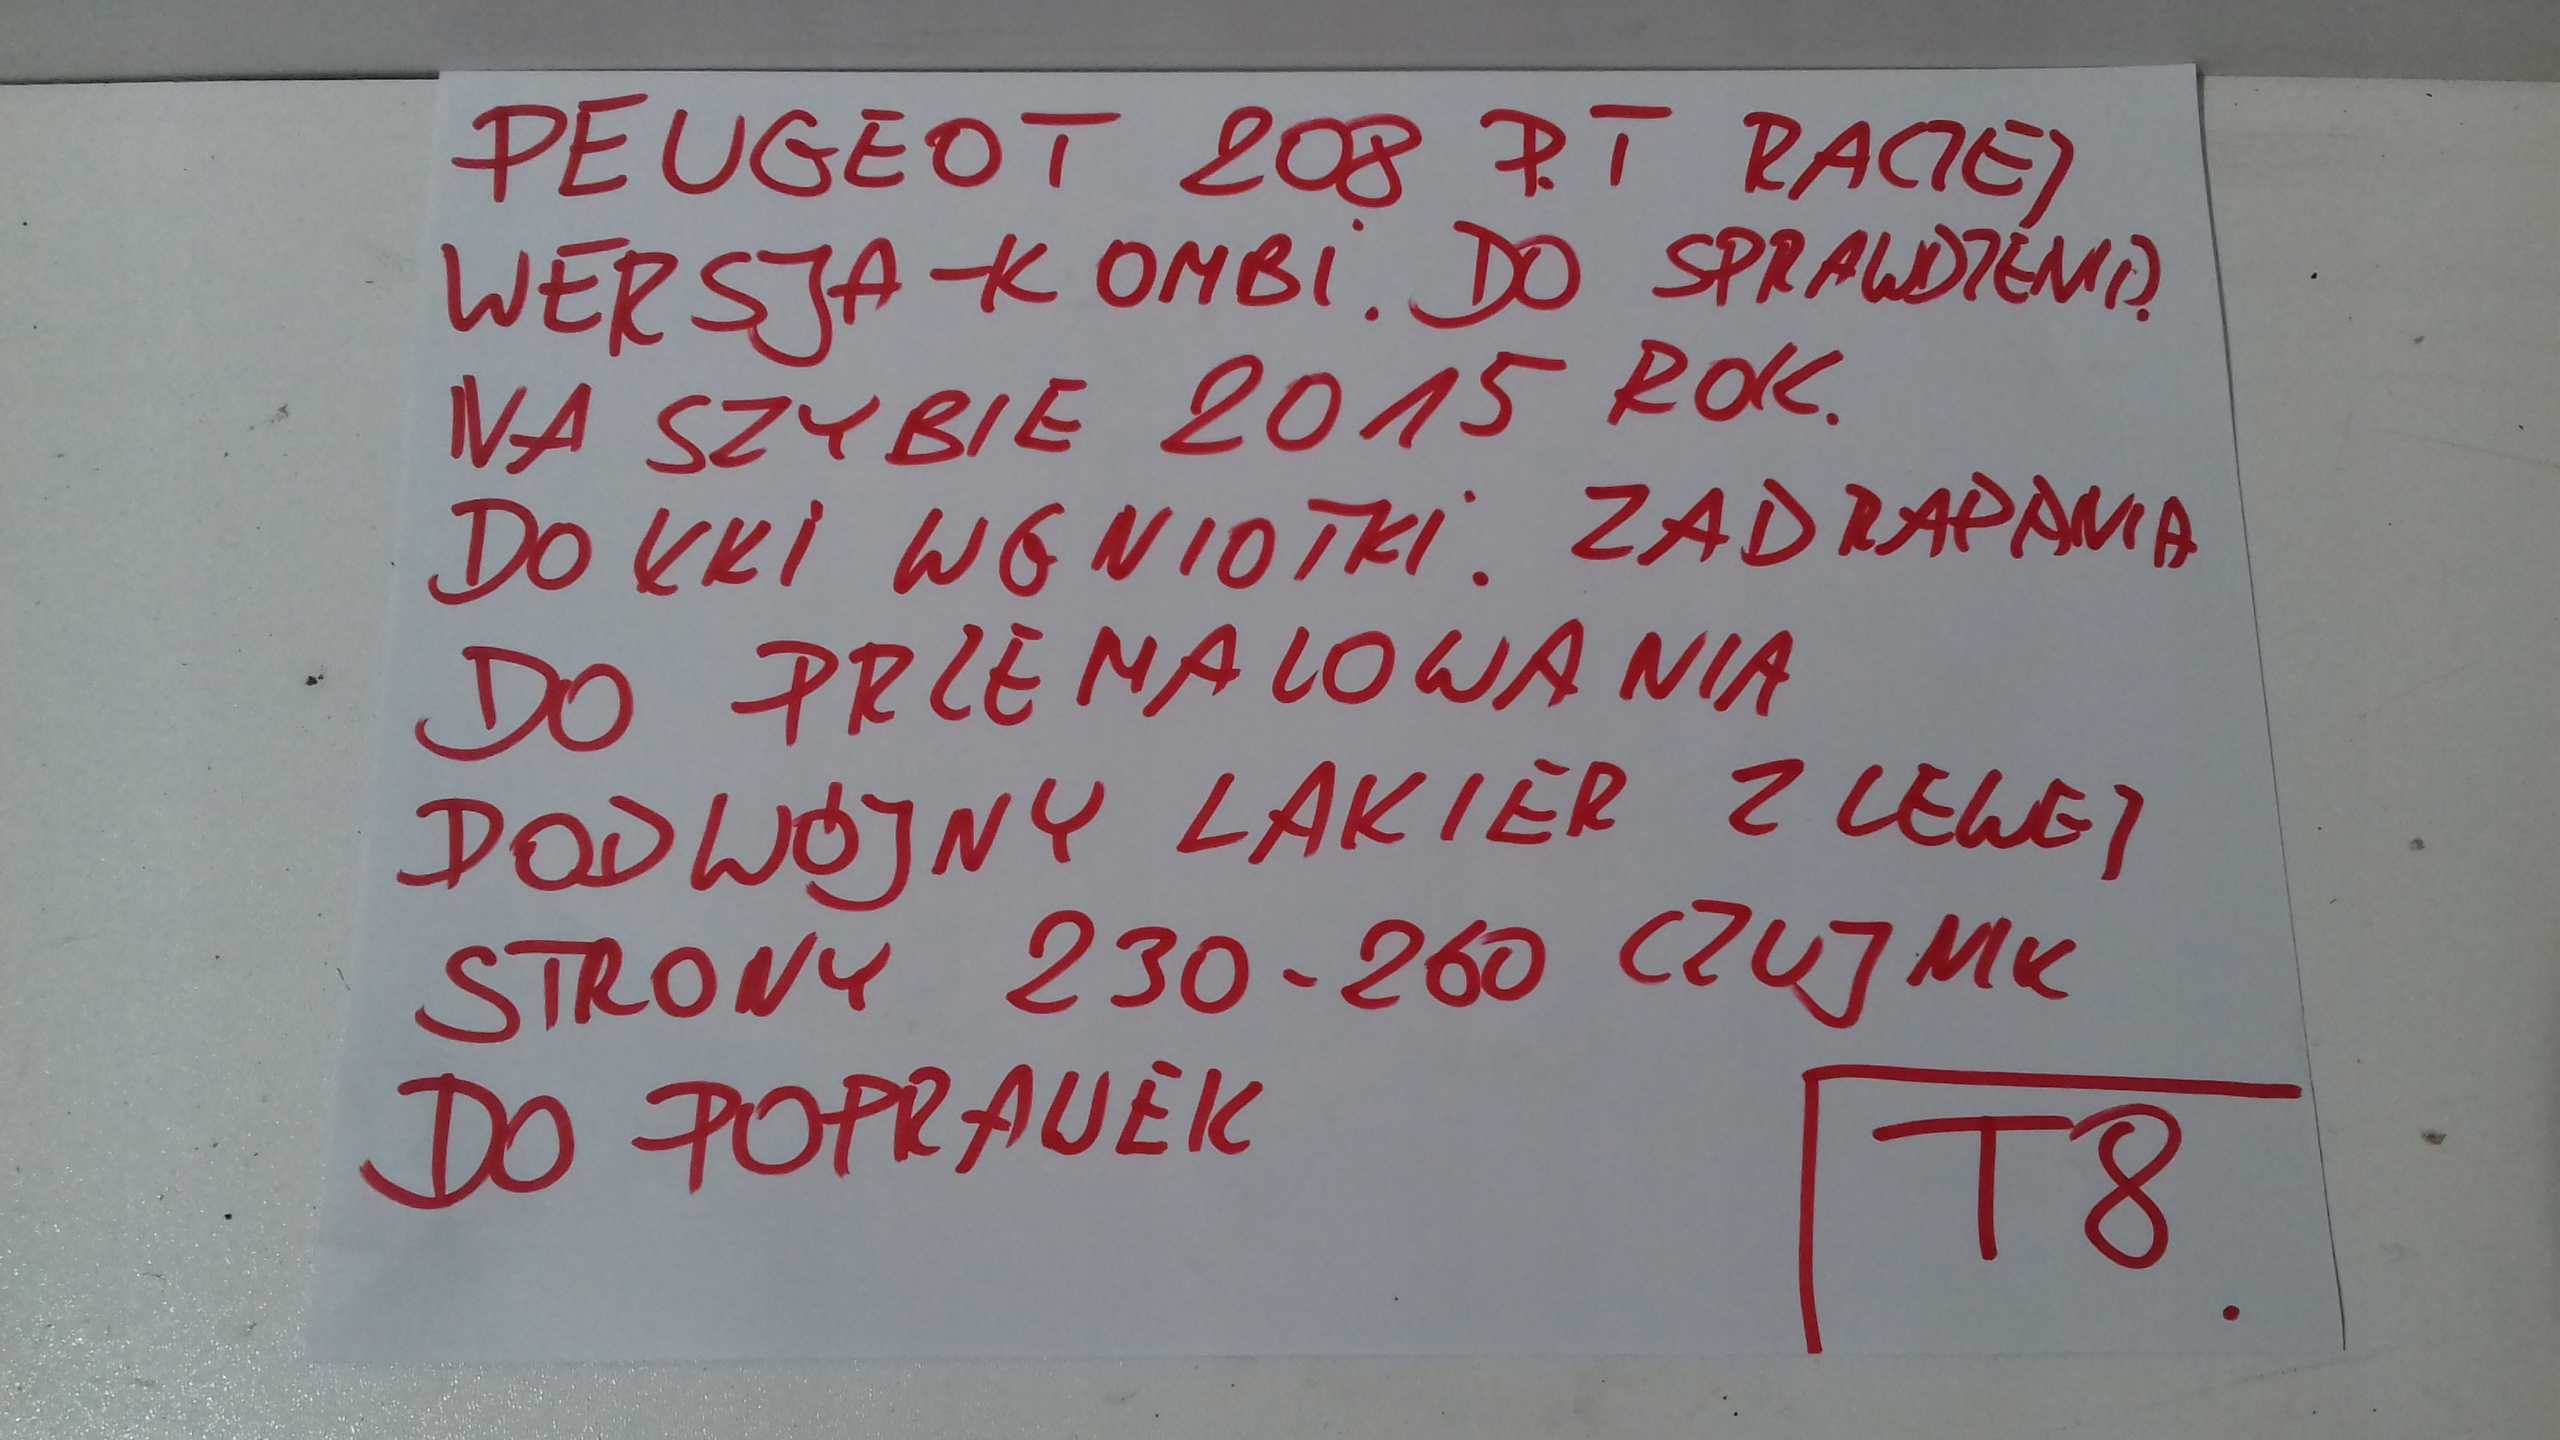 PEUGEOT 208 P.T RACZEJ
WERSJA - KOMBI. DO SPRAWDZENIA.
NA SZYBIE 2015 ROK.
DO KKI WGNIOTKI. ZADRAPANIA
DO PRZEMALOWANIA
PODWÓJNY LAKIER Z LEWEJ
STRONY 230-260 CZUJNIK
DO POPRAWEK
T8.